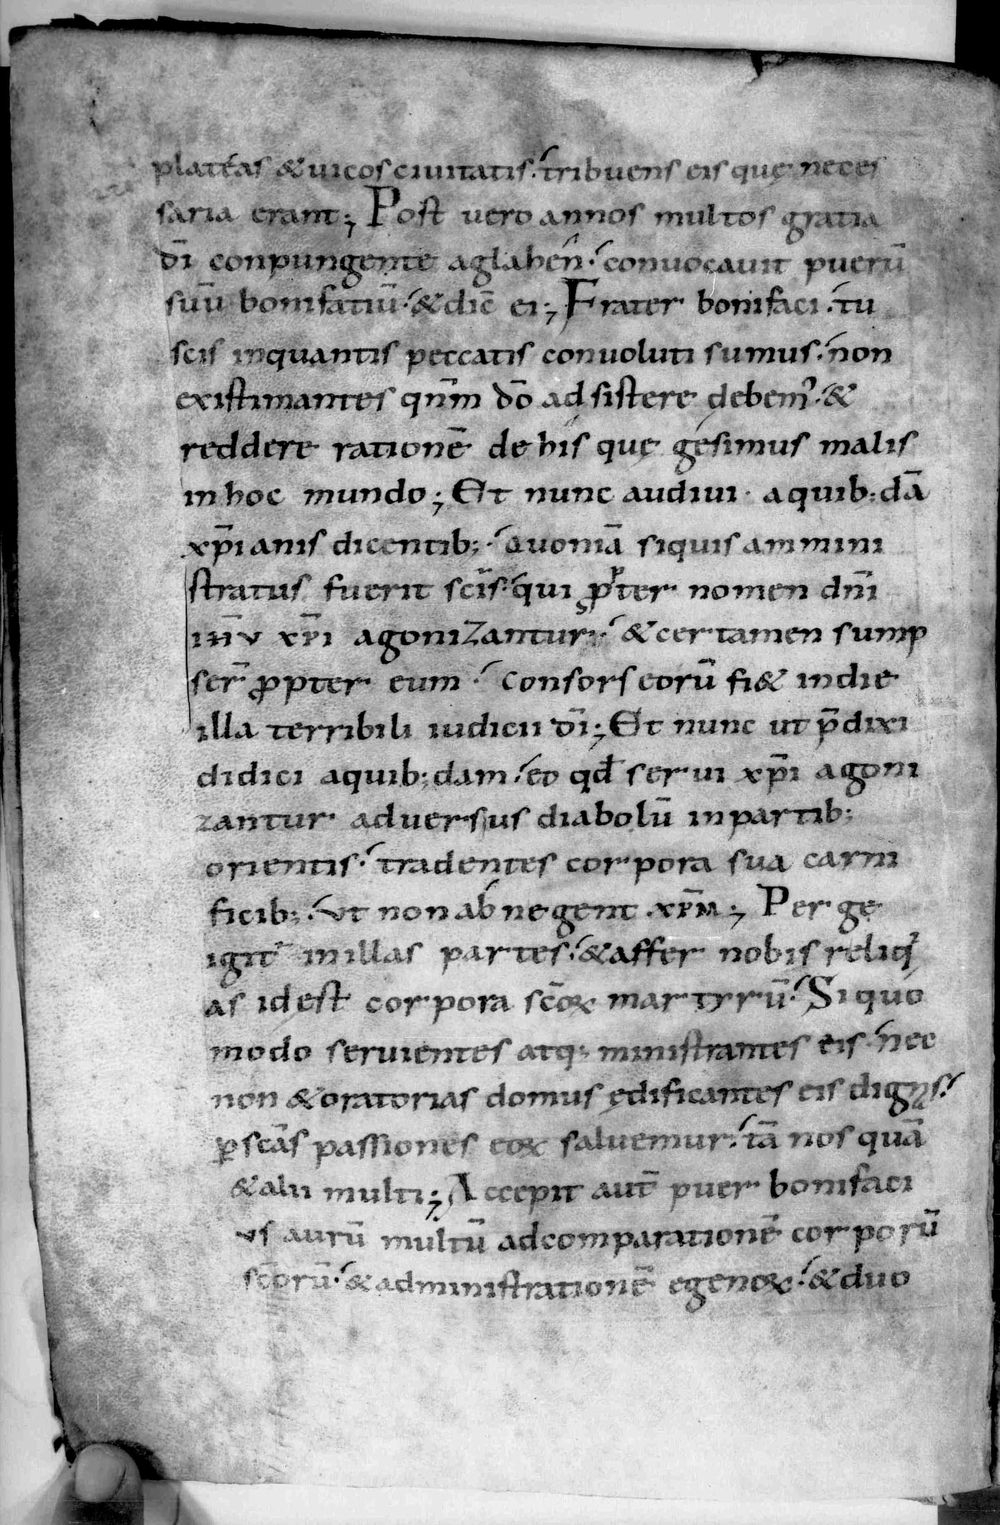 plateas & uicos ciuitatis. tribuens eis quę neces
saria erant; Post uero annos multos gratia
dī conpungente aglahen̄. conuocauit puerū
suū bonifatiū. & dic̄ ei; Frater bonifaci. tu
scis inquantis peccatis conuoluti sumus. non
existimantes qn̄m dō adsistere debem'. &
reddere rationē de his quę gesimus malis
in hoc mundo; Et nunc audiui. aquib;dā
xp̄ianis dicentib;. Quoniā siquis ammini
stratus fuerit sc̄is. qui ꝓpter nomen dn̄i
ih̄u xp̄i agonizantur. & certamen sump
ser̄ ꝓpter eum. Consors eorū fi& indie
illa terribili iudicii dī; Et nunc ut p̄dixi
didici aquib;dam. eo qd̄ serui xp̄i agoni
zantur aduersus diabolū in partib;
orientis. tradentes corpora sua carni
ficib;. Ut non abnegent xp̄m; Perge
igit' in illas partes. & affer nobis reliq'
as idest corpora sc̄oꝝ martyrū. Si quo
modo seruientes atq; ministrantes eis. nec
non & oratorias domus ędificantes eis dignas.
ꝑ scās passiones eoꝝ saluemur. tā nos quā
& alii multi; Accepit aut̄ puer bonifaci
us aurū multū adcomparationē corporū
sc̄orū. & administrationē egenoꝝ. & duo